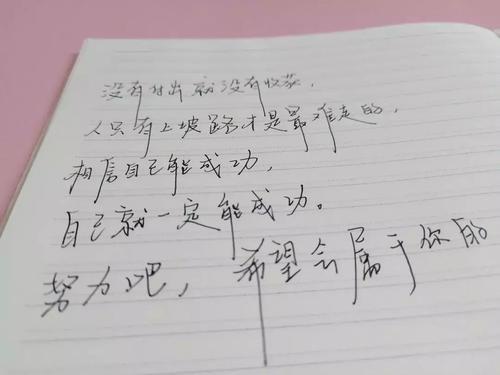 没有付出就没有收获,
人只有上坡路才是最难走的,
相信自己能成功,
自己就一定能成功。
努力吧,希望会属于你的